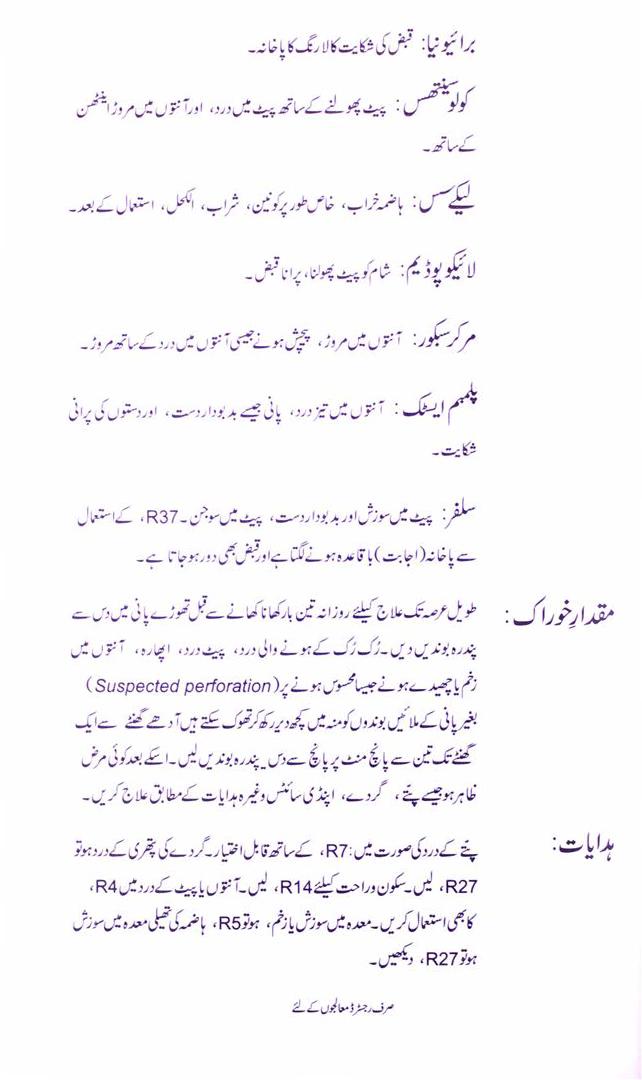 برائیونیا: قبض کی شکایت کالا رنگ کا پاخانہ۔
کولوسینتھس: پیٹ پھولنے کے ساتھ پیٹ میں درد، اور آنتوں میں مروڑ اینٹھن
کے ساتھ۔
لیکے سس: ہاضمہ خراب، خاص طور پر کونین، شراب، الکحل، استعمال کے بعد۔
لائیکو پوڈیم: شام کو پیٹ پھولنا، پرانا قبض۔
مرکرسبکور: آنتوں میں مروڑ، پیچش ہونے جیسی آنتوں میں درد کے ساتھ مروڑ۔
پلمبم ایسٹک: آنتوں میں تیز درد، پانی جیسے بدبودار دست، اور دستوں کی پرانی
شکایت۔
سلفر: پیٹ میں سوزش اور بدبودار دست، پیٹ میں سوجن۔ R37، کے استعمال
سے پاخانہ (اجابت) باقاعدہ ہونے لگتا ہے اور قبض بھی دور ہوجاتا ہے۔
مقدارِ خوراک: طویل عرصہ تک علاج کیلئے روزانہ تین بار کھانا کھانے سے قبل تھوڑے پانی میں دس سے
پندرہ بوندیں دیں۔ رُک رُک کے ہونے والی درد، پیٹ درد، اپھارہ، آنتوں میں
زخم یا چھیدے ہونے جیسا محسوس ہونے پر (Suspected perforation)
بغیر پانی کے ملائیں بوندوں کو منہ میں کچھ دیر رکھ کر تھوک سکتے ہیں آدھے گھنٹے سے ایک
گھنٹے تک تین سے پانچ منٹ پر پانچ سے دس۔ پندرہ بوندیں لیں۔ اسکے بعد کوئی مرض
ظاہر ہو جیسے پتّے، گردے، اپنڈی سائٹس وغیرہ ہدایات کے مطابق علاج کریں۔
ہدایات: پتّے کے درد کی صورت میں: R7، کے ساتھ قابل اختیار۔ گردے کی پتھری کے درد ہو تو
R27، لیں۔ سکون و راحت کیلئے R14، لیں۔ آنتوں یا پیٹ کے درد میں R4،
کا بھی استعمال کریں۔ معدہ میں سوزش یا زخم، ہو تو R5، ہاضمہ کی تھیلی معدہ میں سوزش
ہو تو R27، دیکھیں۔
صرف رجسٹرڈ معالجوں کے لئے